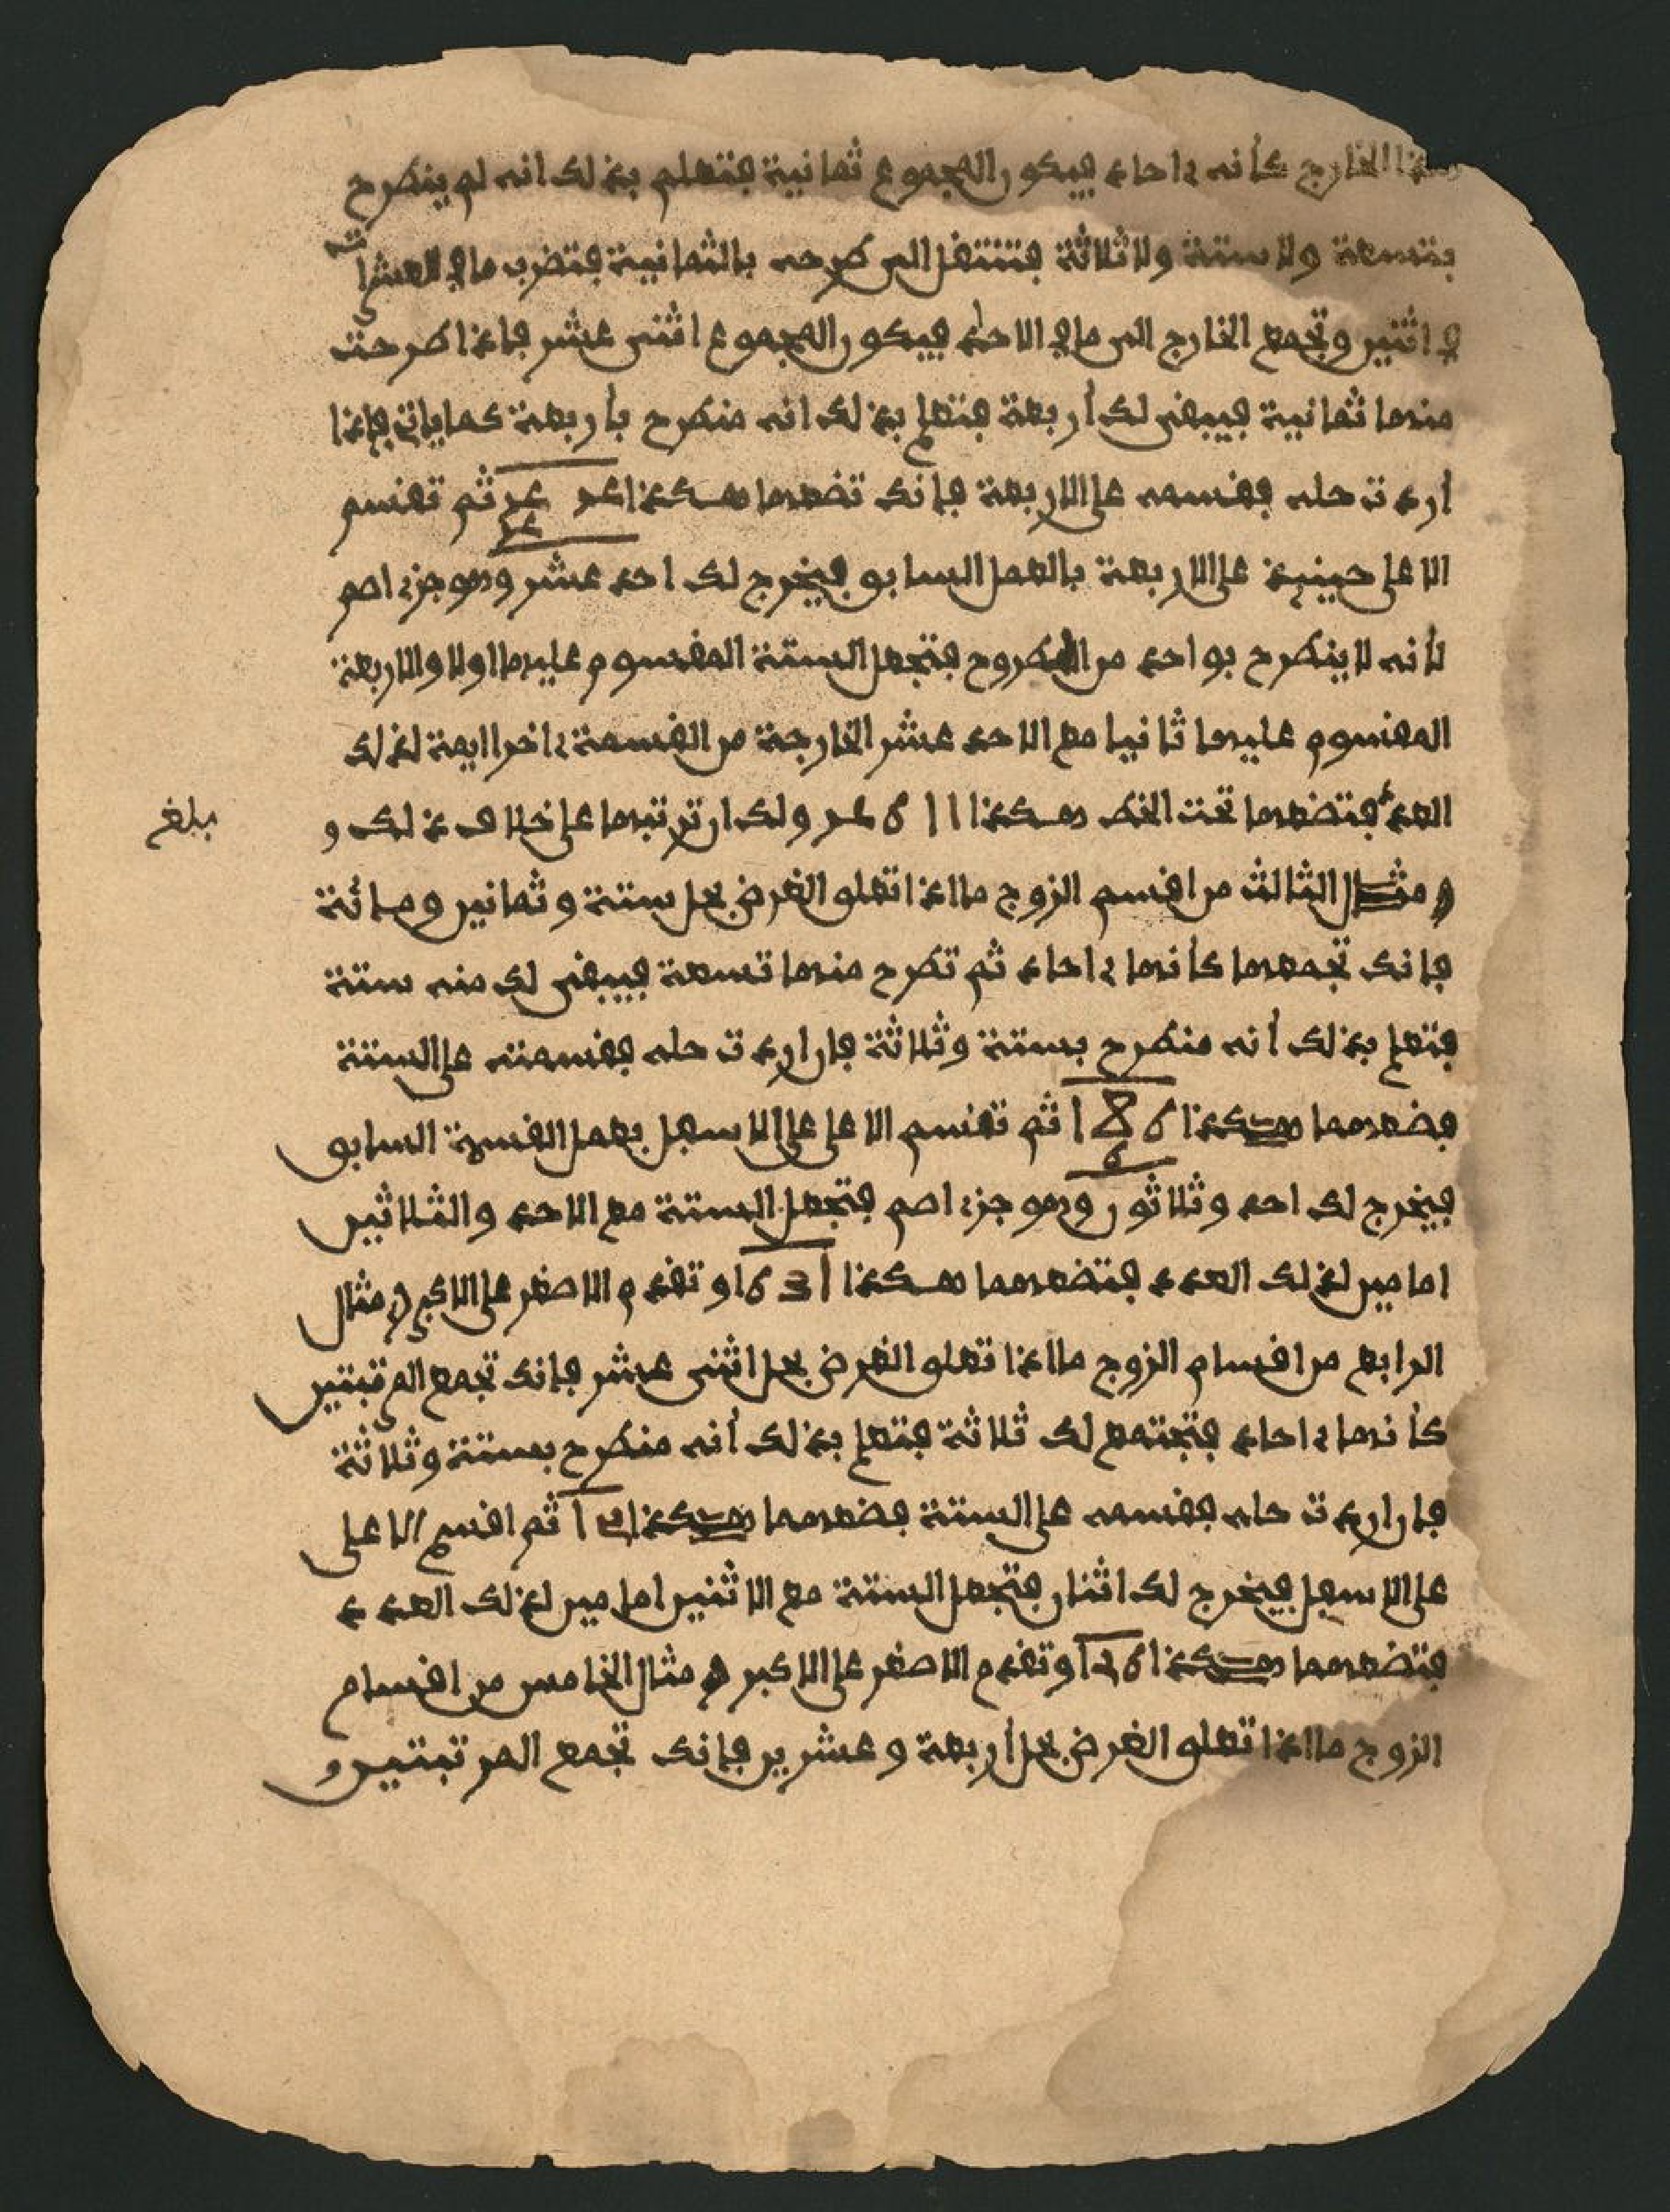 هذا الخارج كأنه ءاحاد فيكون المجموع ثمانية فتعلم بذلك انه لم ينطرح
بتسعة ولا ستة ولا ثلاثة فتنتقل الى طرحه بالثمانية فتضرب ما في العشرات
في اثنين وتجمع الخارج الى ما في الاحاد فيكون المجموع اثنى عشر فإذا طرحت
منها ثمانية فيبقى لك أربعة فتعلم بذلك انه منطرح بأربعة كما يأتي فإذا
أردت حله فقسمه على الاربعة فإنك تضعها هكذا 44 4 ثم تقسم
الاعلى حينئذ على الاربعة بالعمل السابق فيخرج لك احد عشر وهو جزء اصم
لأنه لا ينطرح بواحد من المطروح فتجعل الستة المقسوم عليها اولا والاربعة
المقسوم عليها ثانيا مع الاحد عشر الخارجة من القسمة ءاخرا ايمة لذلك
العدد فتضعها تحت الخط هكذا 11 6 4 ولك ان ترتبها على خلاف ذلك و
مبلغ
ه مثال الثالث من اقسم الزوج ما اذا تعلق الغرض بحل ستة وثمانين ومائة
فإنك تجمعها كأنها ءاحاد ثم تطرح منها تسعة فيبقى لك منه ستة
فتعلم بذلك أنه منطرح بستة وثلاثة فإن اردت حله فقسمته على الستة
فضعهما هكذا 186 6 ثم تقسم الاعلى على الاسفل بعمل القسمة السابق
فيخرج لك احد وثلاثون وهو جزء اصم فتجعل الستة مع الاحد والثلاثين
امامين لذلك العدد فتضعهما هكذا 6 31 او تقدم الاصغر على الاكبر ه مثال
الرابع من اقسام الزوج ما اذا تعلق الغرض بحل اثنى عشر فإنك تجمع المرتبتين
كأنها ءاحاد فتجتمع لك ثلاثة فتعلم بذلك أنه منطرح بستة وثلاثة
فإن اردت حله فقسمه على الستة فضعهما هكذا 12 ثم اقسم الاعلى
على الاسفل فيخرج لك اثنان فتجعل الستة مع الاثنين امامين لذلك العدد
فتضعهما هكذا 6 2 او تقدم الاصغر على الاكبر ه مثال الخامس من اقسام
الزوج ما اذا تعلق الغرض بحل أربعة وعشرين فإنك تجمع المرتبتين و